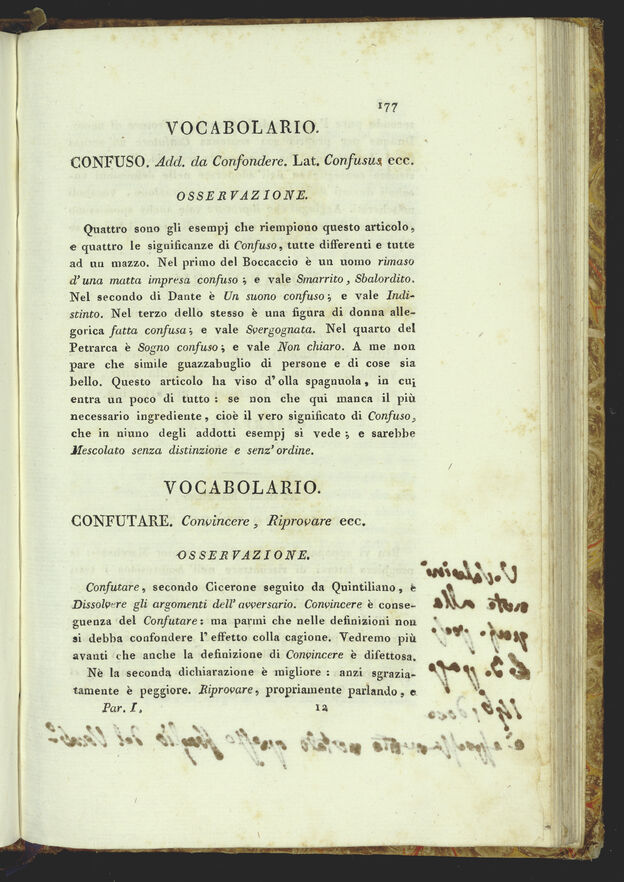 177
VOCABOLARIO.
CONFUSO. Add. da Confondere. Lat. Confusus, ecc.
OSSERVAZIONE.
Quattro sono gli esempj che riempiono questo articolo,
e quattro le significanze di Confuso, tutte differenti e tutte
ad un mazzo. Nel primo del Boccaccio è un uomo rimaso
d'una matta impresa confuso; e vale Smarrito, Sbalordito.
Nel secondo di Dante è Un suono confuso; e vale Indi-
stinto. Nel terzo dello stesso è una figura di donna alle-
gorica fatta confusa; e vale Svergognata. Nel quarto del
Petrarca è Sogno confuso; e vale Non chiaro. A me non
pare che simile guazzabuglio di persone e di cose sia
bello. Questo articolo ha viso d'olla spagnuola, in cui
entra un poco di tutto: se non che qui manca il più
necessario ingrediente, cioè il vero significato di Confuso,
che in niuno degli addotti esempj si vede; e sarebbe
Mescolato senza distinzione e senz'ordine.
VOCABOLARIO.
CONFUTARE. Convincere, Riprovare ecc.
OSSERVAZIONE.
Confutare, secondo Cicerone seguito da Quintiliano, è
Dissolvere gli argomenti dell'avversario. Convincere è conse-
guenza del Confutare: ma parmi che nelle definizioni non
si debba confondere l'effetto colla cagione. Vedremo più
avanti che anche la definizione di Convincere è difettosa.
Nè la seconda dichiarazione è migliore: anzi sgrazia-
tamente è peggiore. Riprovare, propriamente parlando, e
Par. I, 12